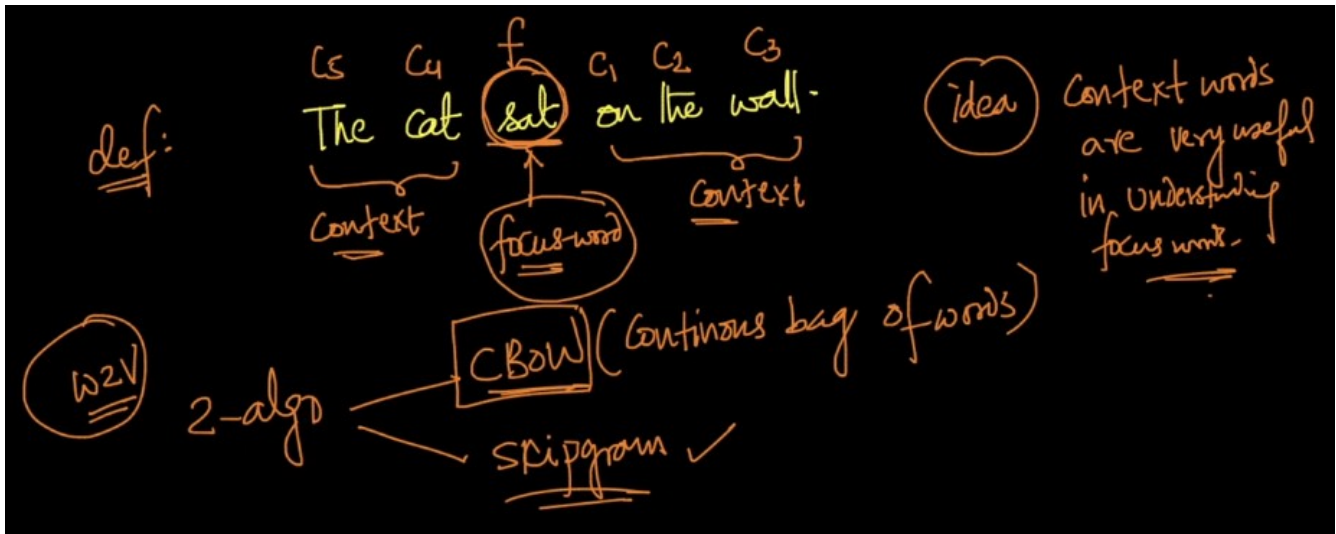 C5 C4 f C1 C2 C3
def: The cat sat on the wall.
Context focus-word Context
idea Context words
are very useful
in understanding
focus words.
W2V 2-algo CBOW (Continous bag of words)
skipgram ✓